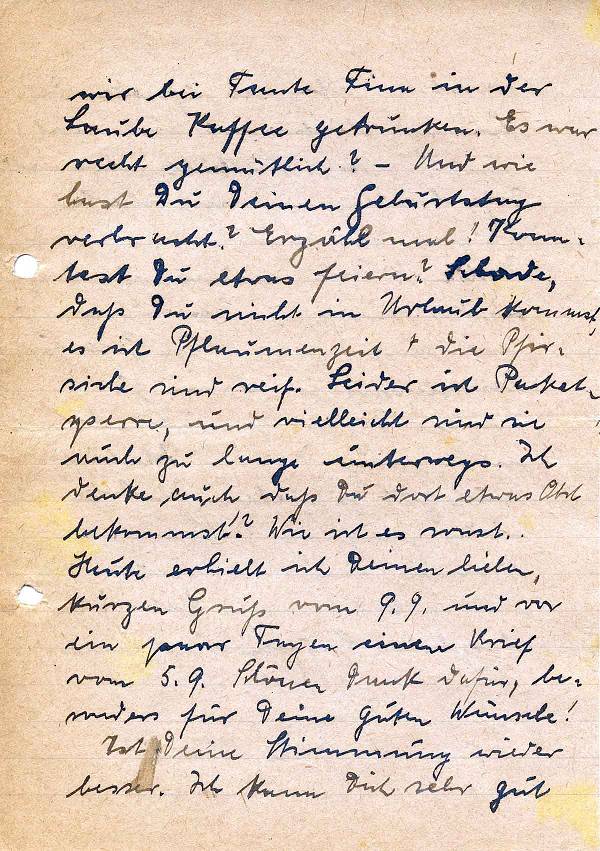 wir bei Tante Tina in der
Laube Kaffee getrunken. Es war
recht gemütlich? – Und wie
hast Du Deinen Geburtstag
verbracht? Erzähl mal! Konn-
test Du etwas feiern? Schade,
daß Du nicht in Urlaub kommst,
es ist Pflaumenzeit + die Pfir-
siche sind reif. Leider ist Paket-
sperre, und vielleicht sind sie
auch zu lange unterwegs. Ich
denke auch daß Du dort etwas Obst
bekommst!? Wie ist es sonst..
Heute erhielt ich Deinen lieben,
kurzen Gruß vom 9.9. und vor
ein paar Tagen einen Brief
vom 5.9. Schönen Dank dafür, be-
sonders für Deine guten Wünsche!
Ist Deine Stimmung wieder
besser. Ich kann Dich sehr gut